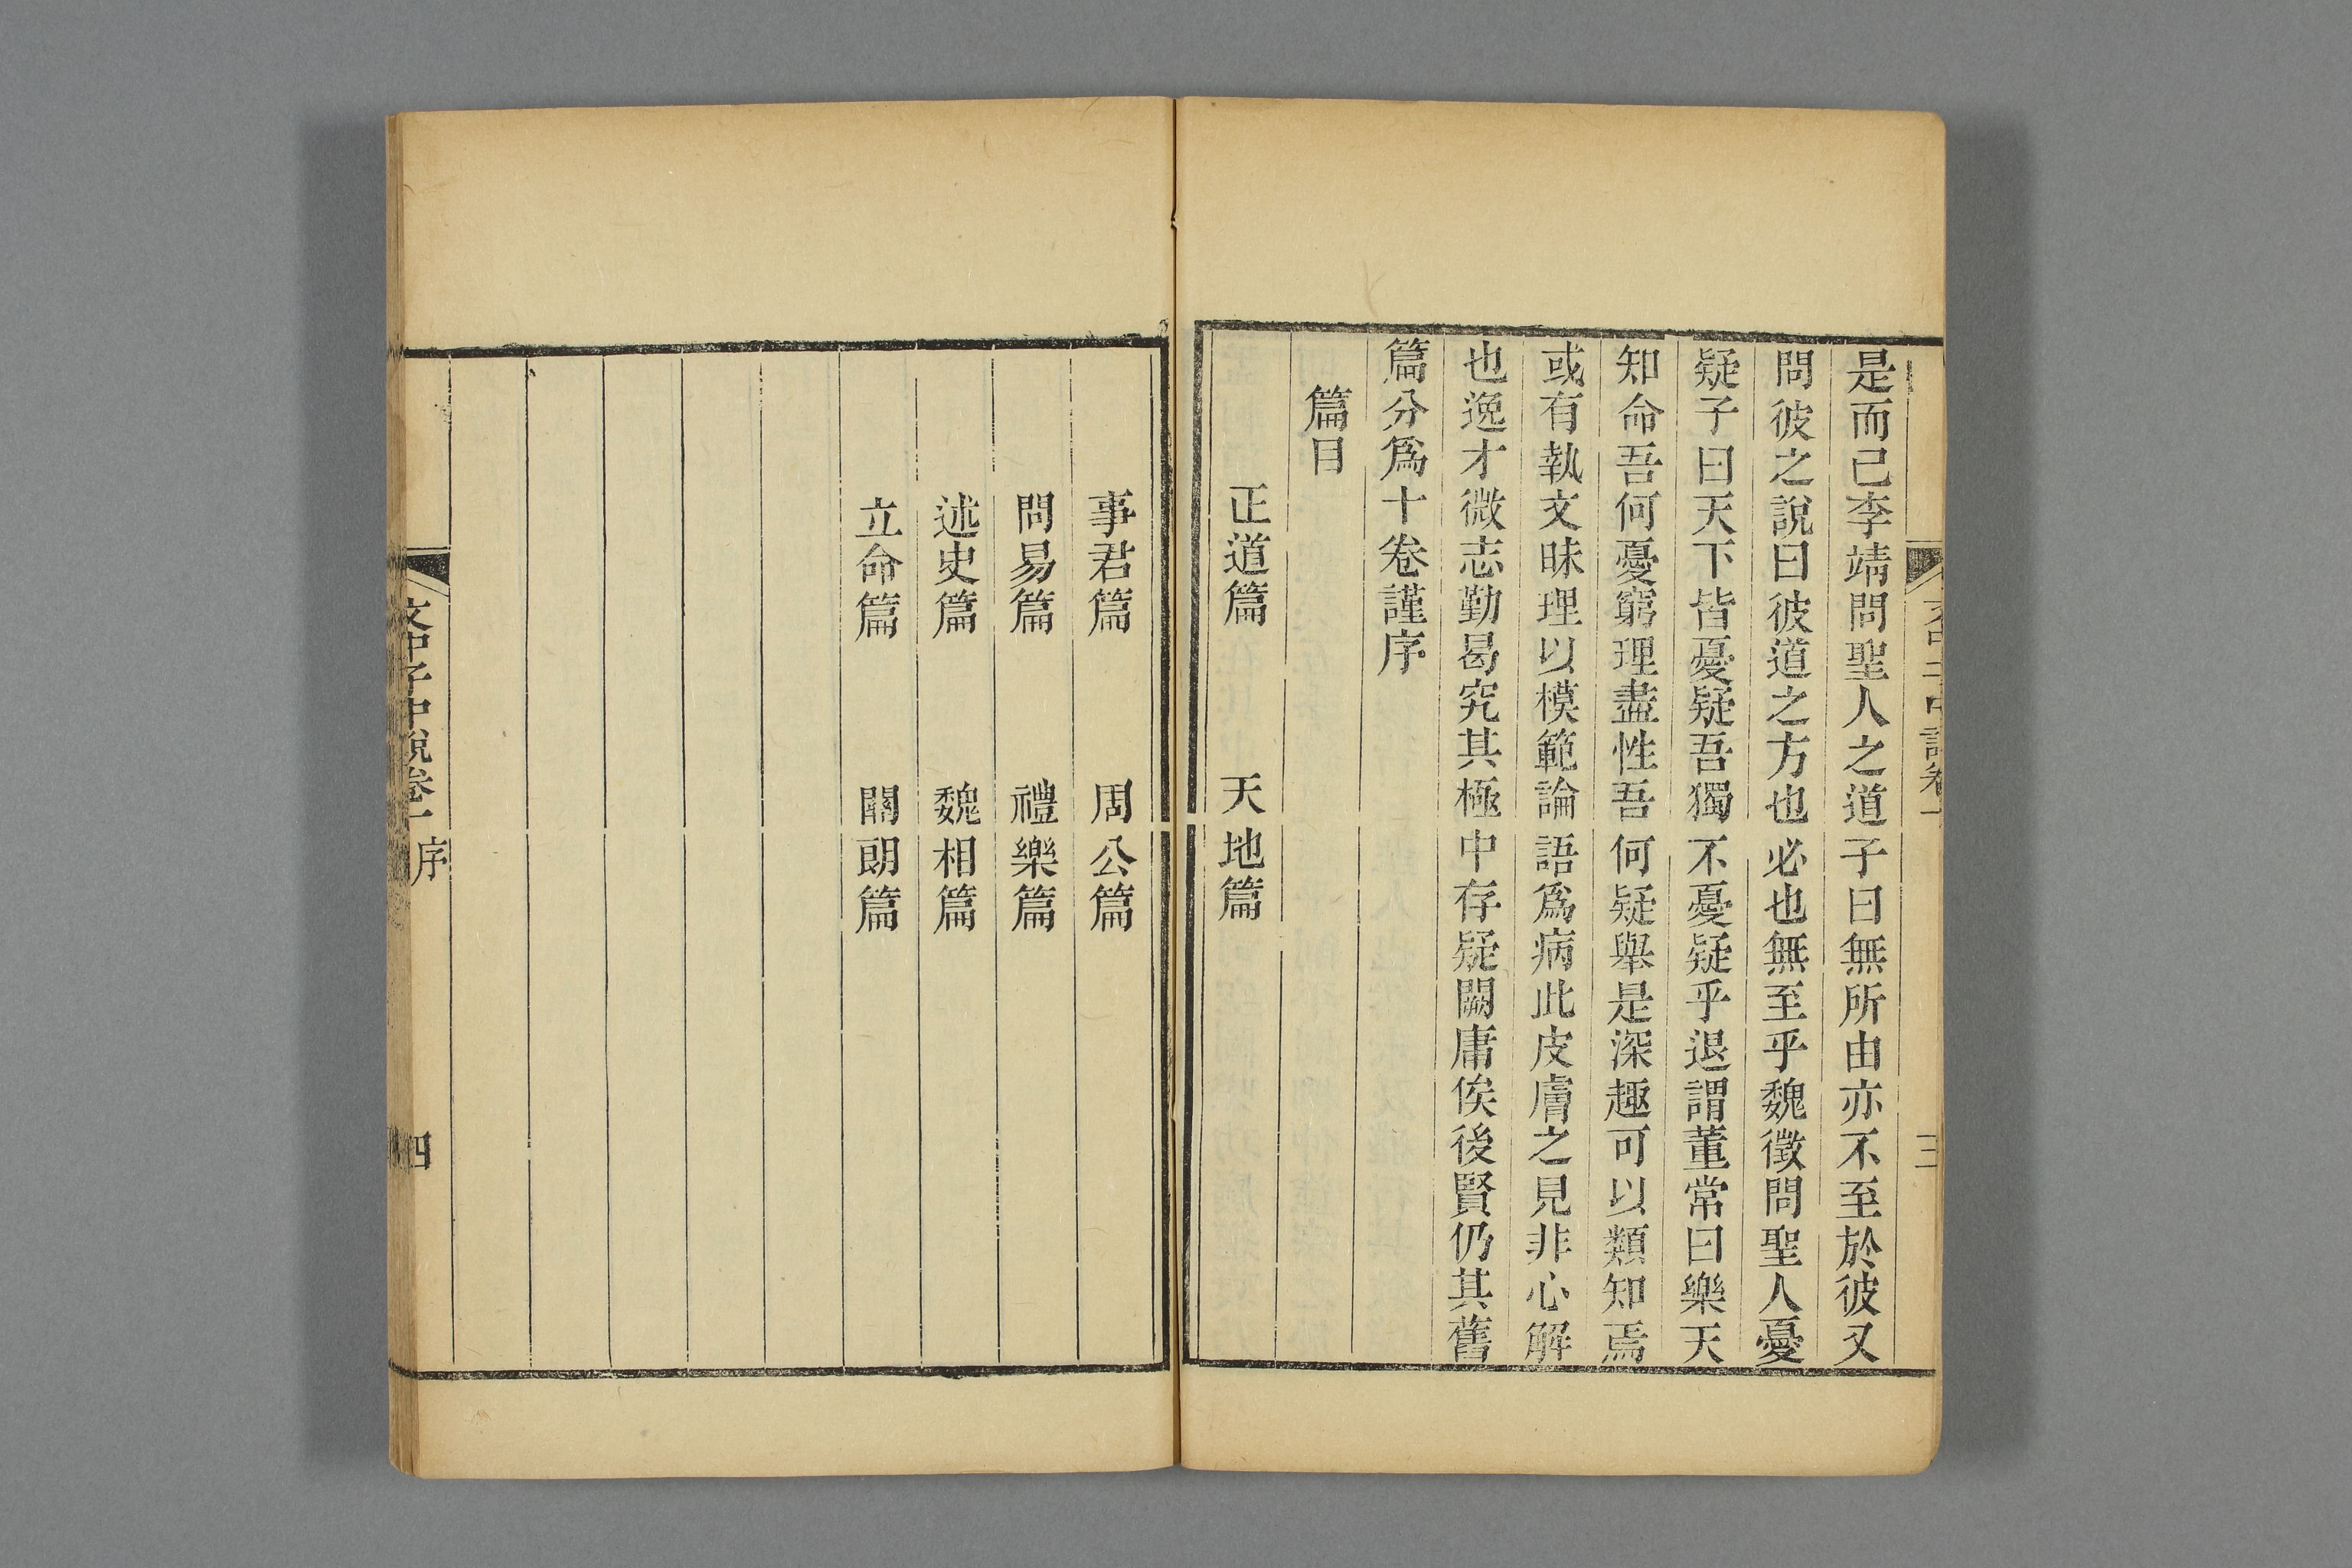 文中子中說卷一
三
是而已李靖問聖人之道子曰無所由亦不至於彼又
問彼之說曰彼道之方也必也無至乎魏徵問聖人憂
疑子曰天下皆憂疑吾獨不憂疑乎退謂董常曰樂天
知命吾何憂窮理盡性吾何疑舉是深趣可以類知焉
或有執文昧理以模範論語爲病此皮膚之見非心解
也逸才微志勤曷究其極中存疑闕庸俟後賢仍其舊
篇分爲十卷謹序
篇目
正道篇 天地篇
事君篇 周公篇
問易篇 禮樂篇
述史篇 魏相篇
立命篇 關朗篇
文中子中說卷一 序
四